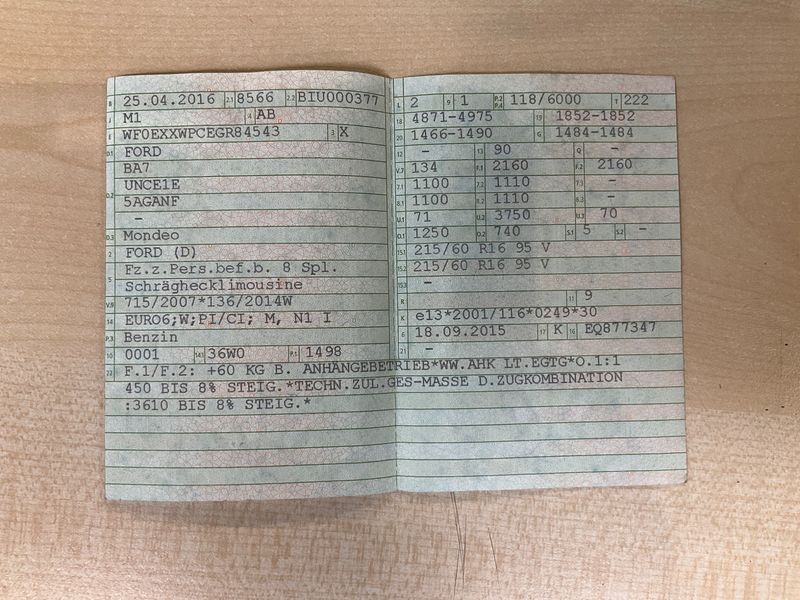 B 25.04.2016 2.1 8566 2.2 BIU000377
J M1 4 AB
E WF0EXXWPCEGR84543 3 X
D.1 FORD
BA7
D.2 UNCE1E
5AGANF
–
D.3 Mondeo
2 FORD (D)
Fz.z.Pers.bef.b. 8 Spl.
5 Schräghecklimousine
V.9 715/2007*136/2014W
14 EURO6;W;PI/CI; M, N1 I
P.3 Benzin
10 0001 14.1 36W0 P.1 1498
L 2 9 1 P.2 P.4 118/6000 T 222
18 4871-4975 19 1852-1852
20 1466-1490 G 1484-1484
12 – 13 90 Q –
V.7 134 F.1 2160 F.2 2160
7.1 1100 7.2 1110 7.3 –
8.1 1100 8.2 1110 8.3 –
U.1 71 U.2 3750 U.3 70
O.1 1250 O.2 740 S.1 5 S.2 –
15.1 215/60 R16 95 V
15.2 215/60 R16 95 V
15.3 –
R 11 9
K e13*2001/116*0249*30
6 18.09.2015 17 K 16 EQ877347
21 –
22 F.1/F.2: +60 KG B. ANHÄNGEBETRIEB*WW.AHK LT.EGTG*O.1:1
450 BIS 8% STEIG.*TECHN.ZUL.GES-MASSE D.ZUGKOMBINATION
:3610 BIS 8% STEIG.*